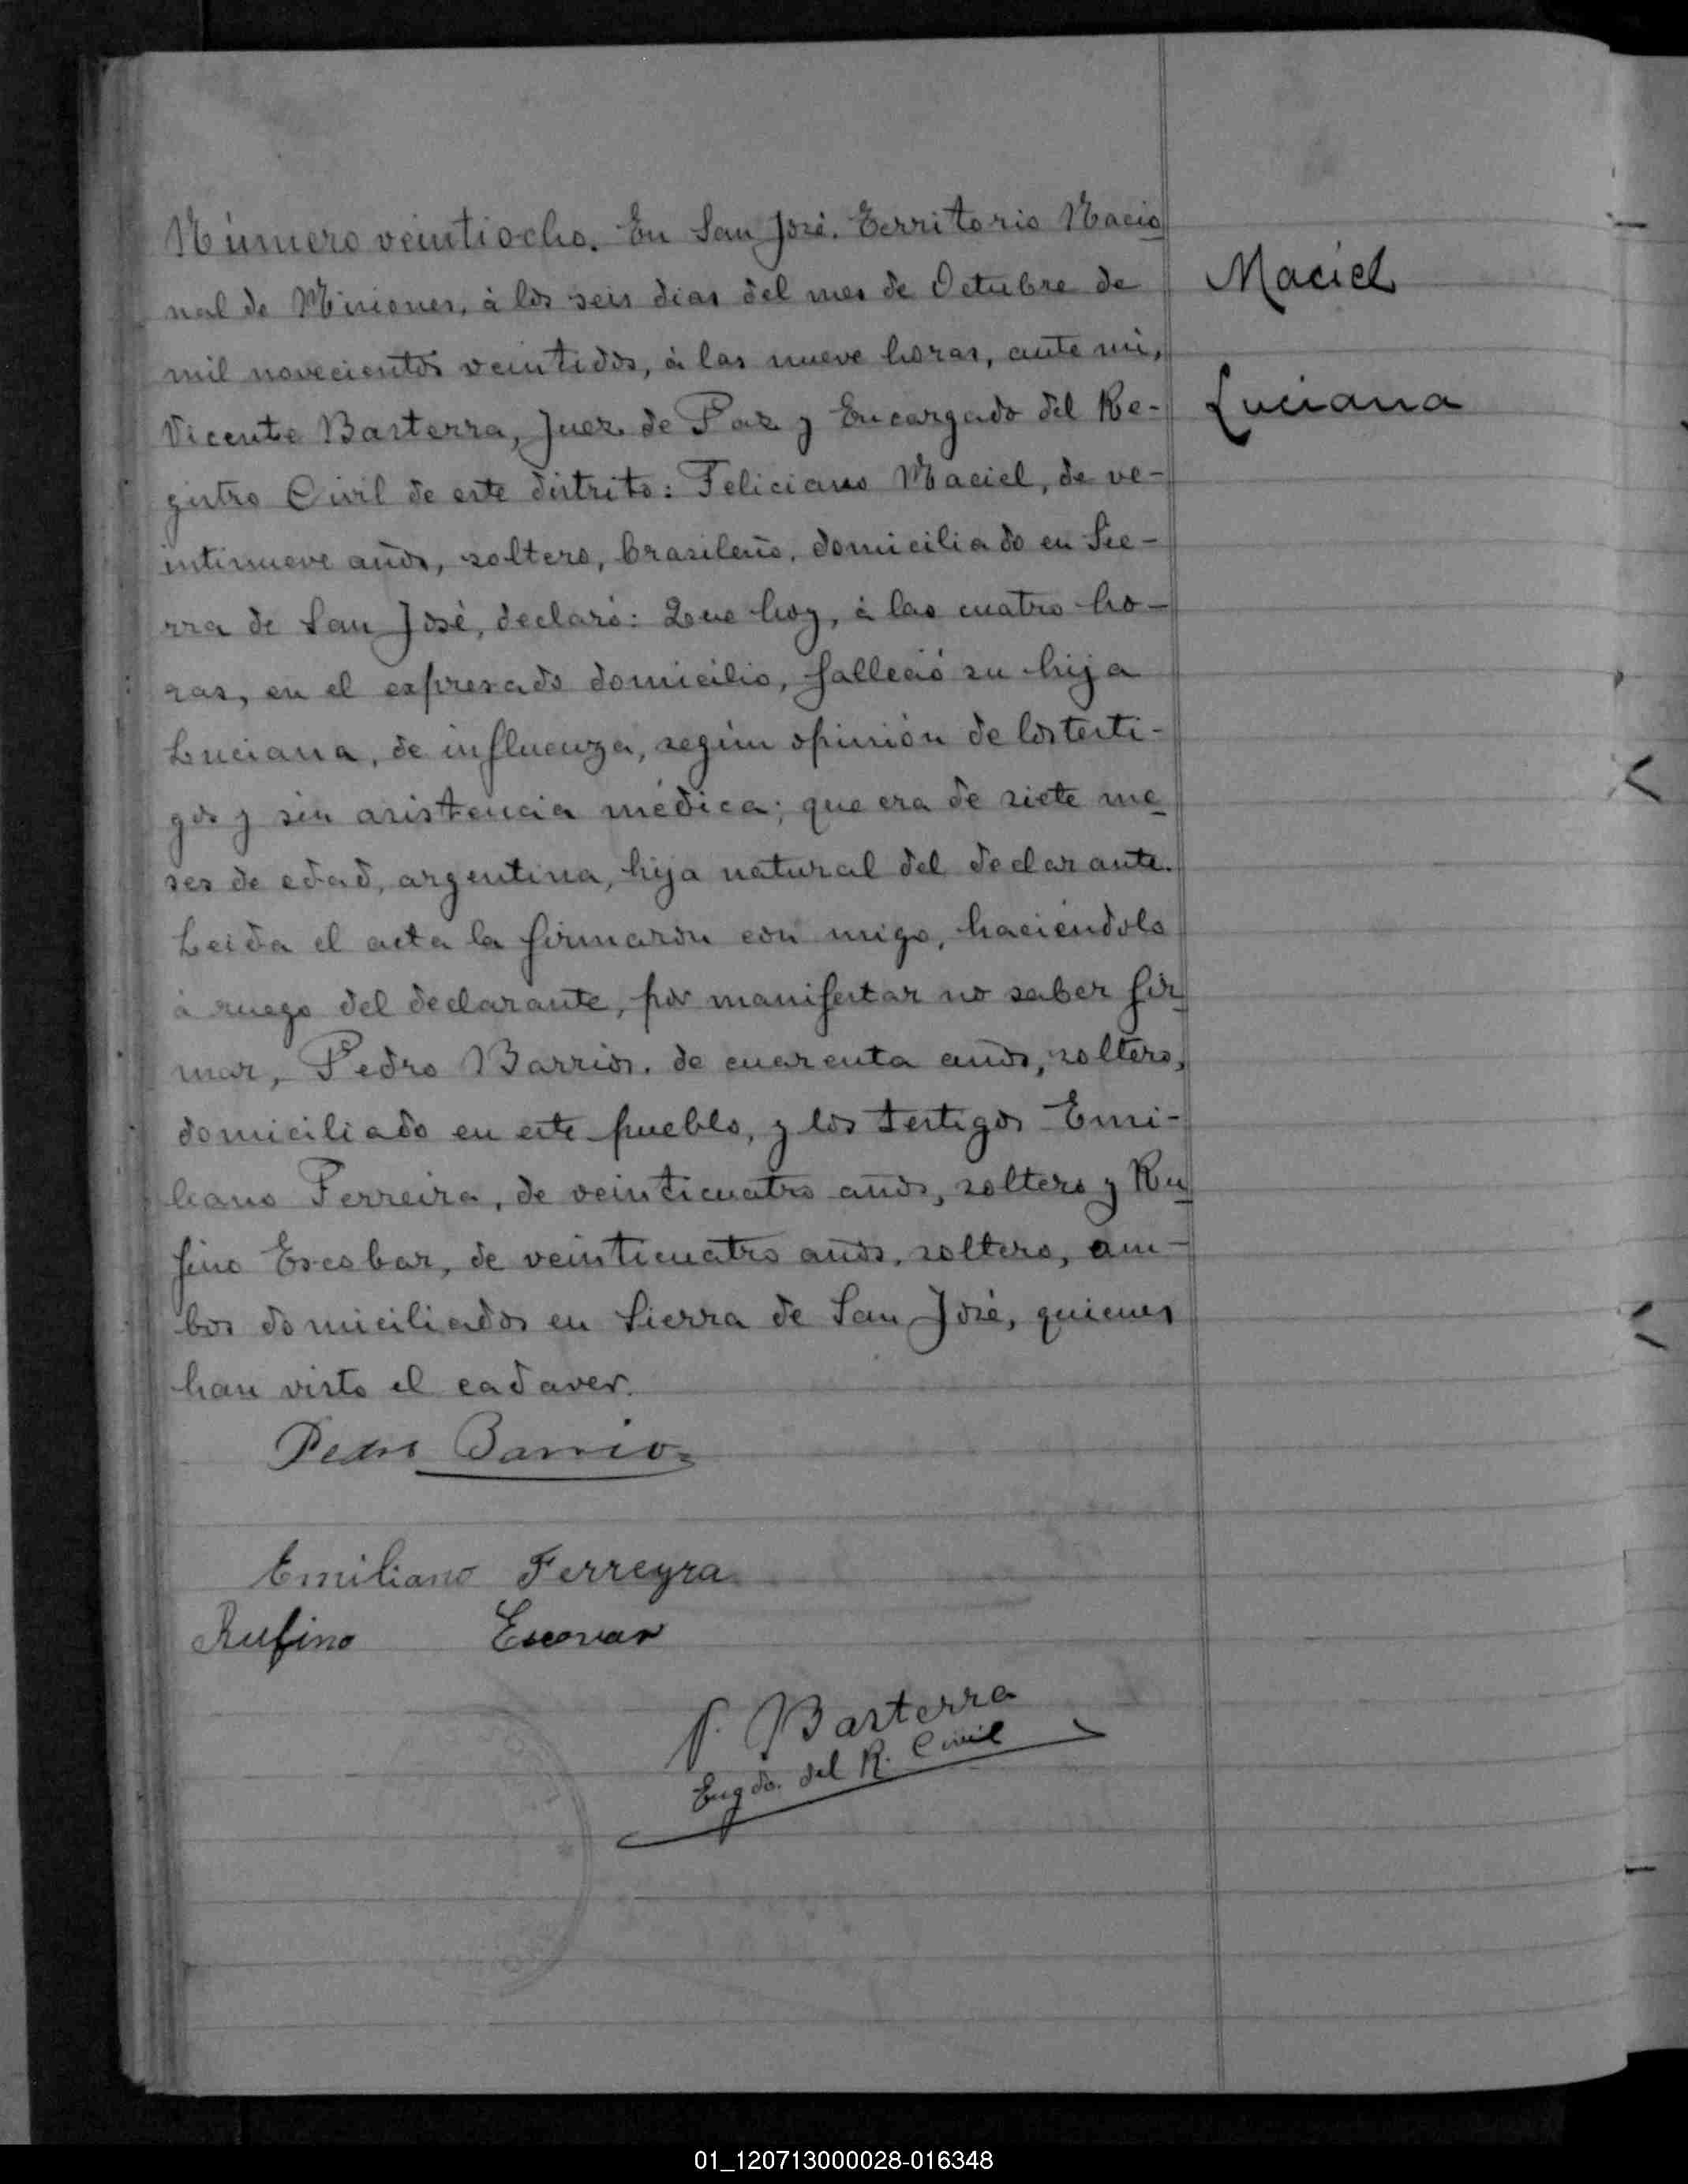 Número veintiocho. En San José. Territorio Nacio
nal de Misiones, à los seis dias del mes de Octubre de
mil novecientos veintidós, à las nueve horas, ante mi,
Vicente Basterra, Juez de Paz y Encargado del Re-
gistro Civil de este distrito: Feliciano Maciel, de ve-
intinueve años, soltero, brasileño, domiciliado en Sie-
rra de San José, declaró: Que hoy, à las cuatro ho-
ras, en el expresado domicilio, falleció su hija
Luciana, de influenza, según opinión de los testi-
gos y sin asistencia médica; que era de siete me
ses de edad, argentina, hija natural del declarante.
Leida el acta la firmaron con migo, haciéndolo
à ruego del declarante, por manifestar no saber fir
mar, Pedro Barrios, de cuarenta años, soltero,
domiciliado en este pueblo, y los testigos Emi-
liano Ferreira, de veinticuatro años, soltero y Ru
fino Escobar, de veinticuatro años, soltero, am-
bos domiciliados en Sierra de San José, quienes
han visto el cadaver.
Maciel
Luciana
Pedro Barrios
Emiliano Ferreyra
Rufino Escovar
V. Basterra
Engdo. del R. Civil
01_120713000028-016348